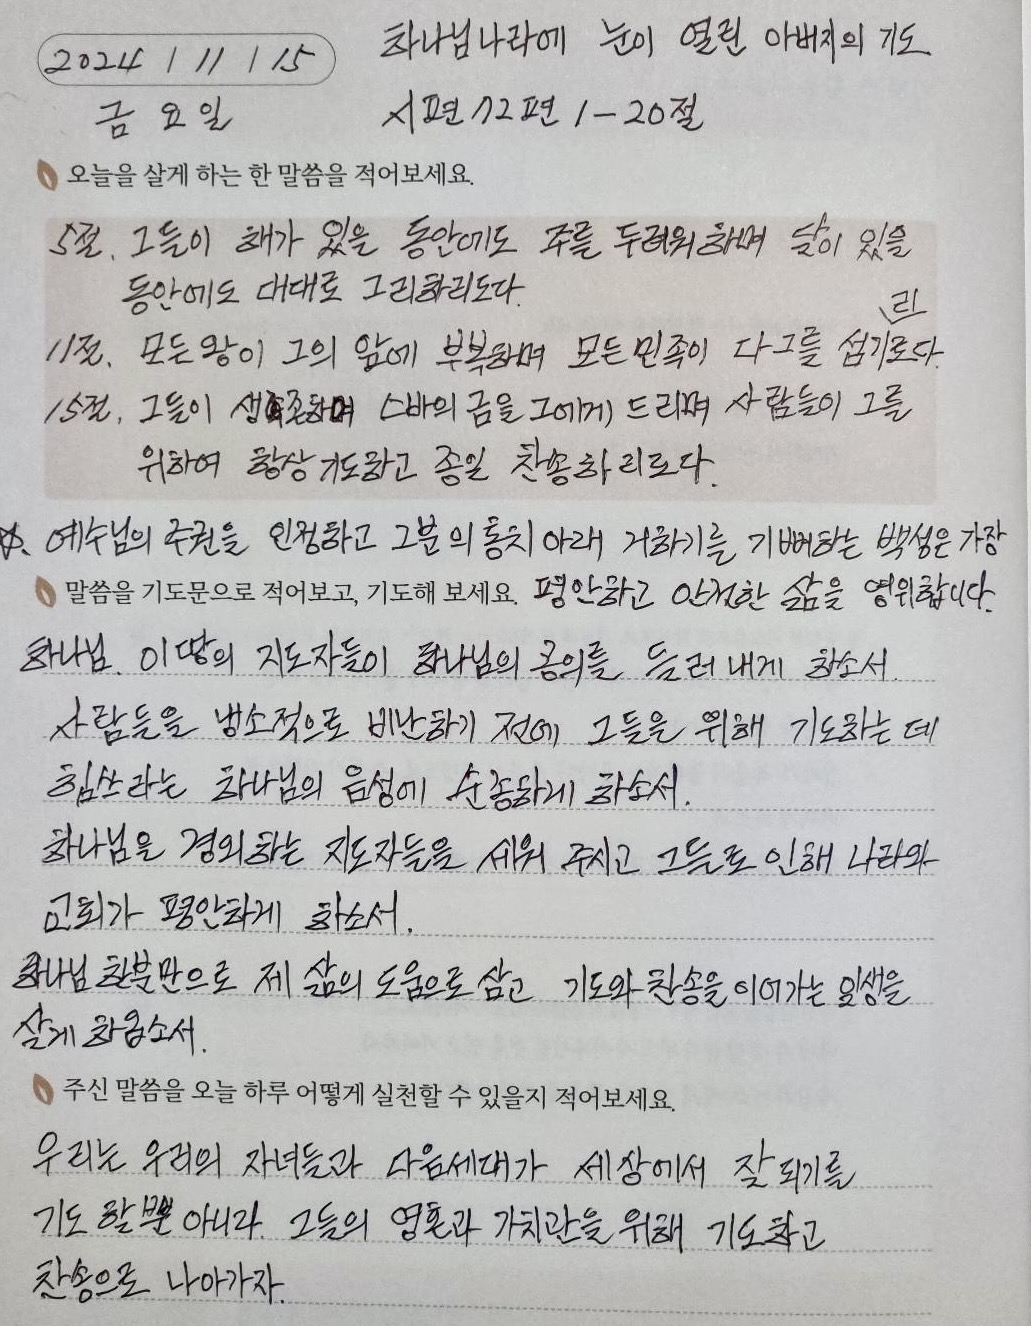 하나님나라에 눈이 열린 아버지의 기도
2024 / 11 / 15
금요일
시편 72편 1-20절
오늘을 살게 하는 한 말씀을 적어보세요.
5절. 그들이 해가 있을 동안에도 주를 두려워하며 달이 있을
동안에도 대대로 그리하리도다.
리
11절. 모든 왕이 그의 앞에 부복하며 모든 민족이 다 그를 섬기로다.
15절. 그들이 생존하며 스바의 금을 그에게 드리며 사람들이 그를
위하여 항상 기도하고 종일 찬송하리로다.
☆. 예수님의 주권을 인정하고 그분의 통치 아래 거하기를 기뻐하는 백성은 가장
말씀을 기도문으로 적어보고, 기도해 보세요. 평안하고 안전한 삶을 영위합니다.
하나님. 이땅의 지도자들이 하나님의 공의를 들러내게 하소서.
사람들을 냉소적으로 비난하기 전에 그들을 위해 기도하는 데
힘쓰라는 하나님의 음성에 순종하게 하소서.
하나님을 경외하는 지도자들을 세워 주시고 그들로 인해 나라와
교회가 평안하게 하소서.
하나님 한분만으로 제 삶의 도움으로 삼고 기도와 찬송을 이어가는 인생을
살게 하옵소서.
주신 말씀을 오늘 하루 어떻게 실천할 수 있을지 적어보세요.
우리는 우리의 자녀들과 다음세대가 세상에서 잘 되기를
기도 할뿐 아니라. 그들의 영혼과 가치관을 위해 기도하고
찬송으로 나아가자.